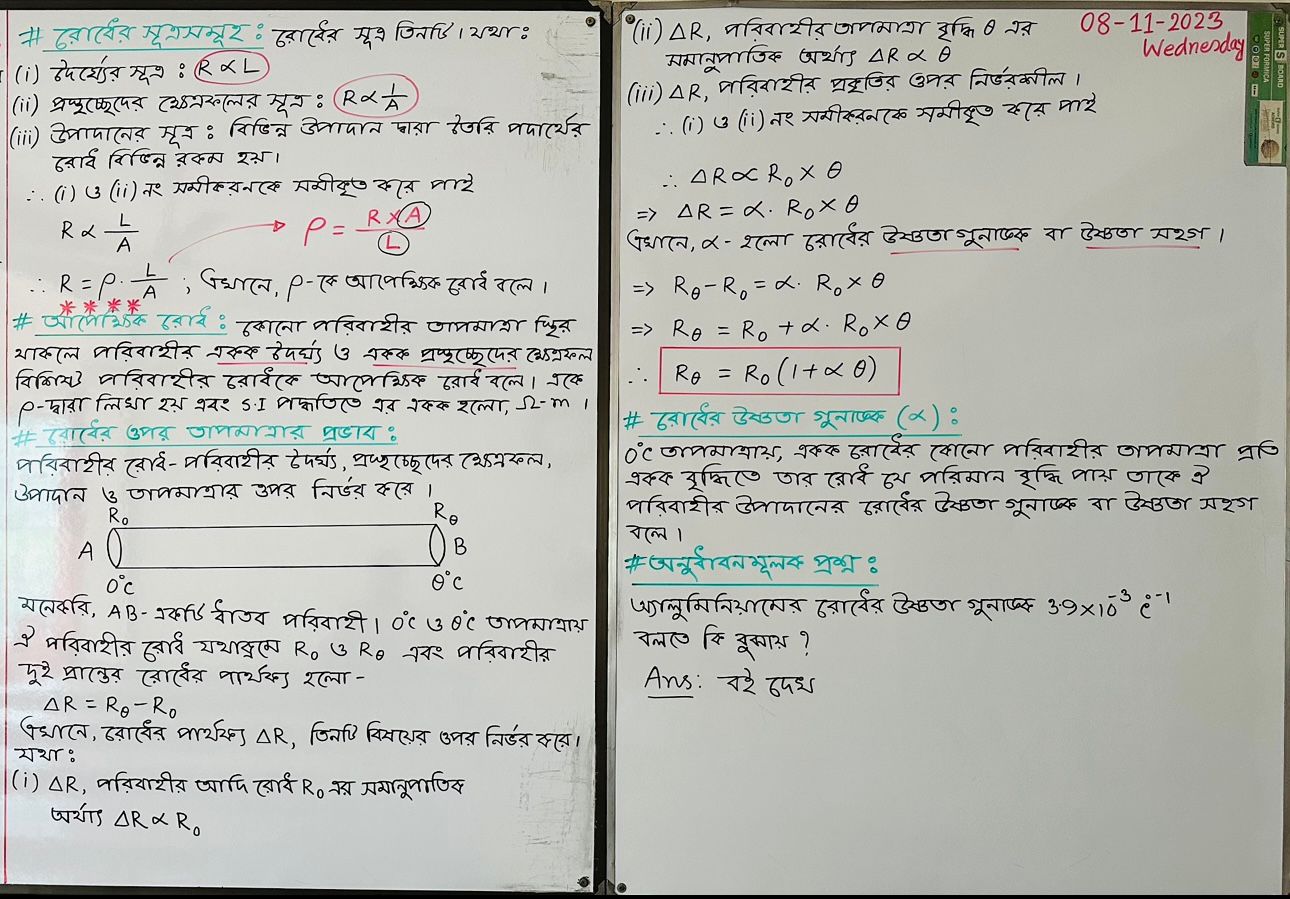 # রোধের সূত্রসমূহ : রোধের সূত্র তিনটি। যথা :
(i) দৈর্ঘ্যের সূত্র : R ∝ L
(ii) প্রস্থচ্ছেদের ক্ষেত্রফলের সূত্র : R ∝ 1/A
(iii) উপাদানের সূত্র : বিভিন্ন উপাদান দ্বারা তৈরি পদার্থের
রোধ বিভিন্ন রকম হয়।
∴ (i) ও (ii) নং সমীকরনকে সমীকৃত করে পাই
R ∝ L/A → ρ = R×A/L
∴ R = ρ · L/A ; এখানে, ρ-কে আপেক্ষিক রোধ বলে।
****
# আপেক্ষিক রোধ : কোনো পরিবাহীর তাপমাত্রা স্থির
থাকলে পরিবাহীর একক দৈর্ঘ্য ও একক প্রস্থচ্ছেদের ক্ষেত্রফল
বিশিষ্ট পরিবাহীর রোধকে আপেক্ষিক রোধ বলে। একে
ρ-দ্বারা লিখা হয় এবং S.I পদ্ধতিতে এর একক হলো, Ω-m ।
# রোধের ওপর তাপমাত্রার প্রভাব :
পরিবাহীর রোধ-পরিবাহীর দৈর্ঘ্য, প্রস্থচ্ছেদের ক্ষেত্রফল,
উপাদান ও তাপমাত্রার ওপর নির্ভর করে ।
R₀ Rθ
A B
0°C θ°C
মনেকরি, AB-একটি ধাতব পরিবাহী। 0°C ও θ°C তাপমাত্রায়
ঐ পরিবাহীর রোধ যথাক্রমে R₀ ও Rθ এবং পরিবাহীর
দুই প্রান্তের রোধের পার্থক্য হলো-
ΔR = Rθ - R₀
এখানে, রোধের পার্থক্য ΔR, তিনটি বিষয়ের ওপর নির্ভর করে।
যথা :
(i) ΔR, পরিবাহীর আদি রোধ R₀ এর সমানুপাতিক
অর্থাৎ ΔR ∝ R₀
08-11-2023
Wednesday
(ii) ΔR, পরিবাহীর তাপমাত্রা বৃদ্ধি θ এর
সমানুপাতিক অর্থাৎ ΔR ∝ θ
(iii) ΔR, পরিবাহীর প্রকৃতির ওপর নির্ভরশীল ।
∴ (i) ও (ii) নং সমীকরনকে সমীকৃত করে পাই
∴ ΔR ∝ R₀ × θ
=> ΔR = α · R₀ × θ
এখানে, α - হলো রোধের উষ্ণতা গুনাঙ্ক বা উষ্ণতা সহগ ।
=> Rθ - R₀ = α · R₀ × θ
=> Rθ = R₀ + α · R₀ × θ
∴ Rθ = R₀ (1 + α θ)
# রোধের উষ্ণতা গুনাঙ্ক (α) :
0°C তাপমাত্রায়, একক রোধের কোনো পরিবাহীর তাপমাত্রা প্রতি
একক বৃদ্ধিতে তার রোধ যে পরিমান বৃদ্ধি পায় তাকে ঐ
পরিবাহীর উপাদানের রোধের উষ্ণতা গুনাঙ্ক বা উষ্ণতা সহগ
বলে ।
# অনুধাবনমূলক প্রশ্ন :
অ্যালুমিনিয়ামের রোধের উষ্ণতা গুনাঙ্ক 3.9×10⁻³ °C⁻¹
বলতে কি বুঝায় ?
Ans: বই দেখ
SUPER BOARD
SUPER FORMICA